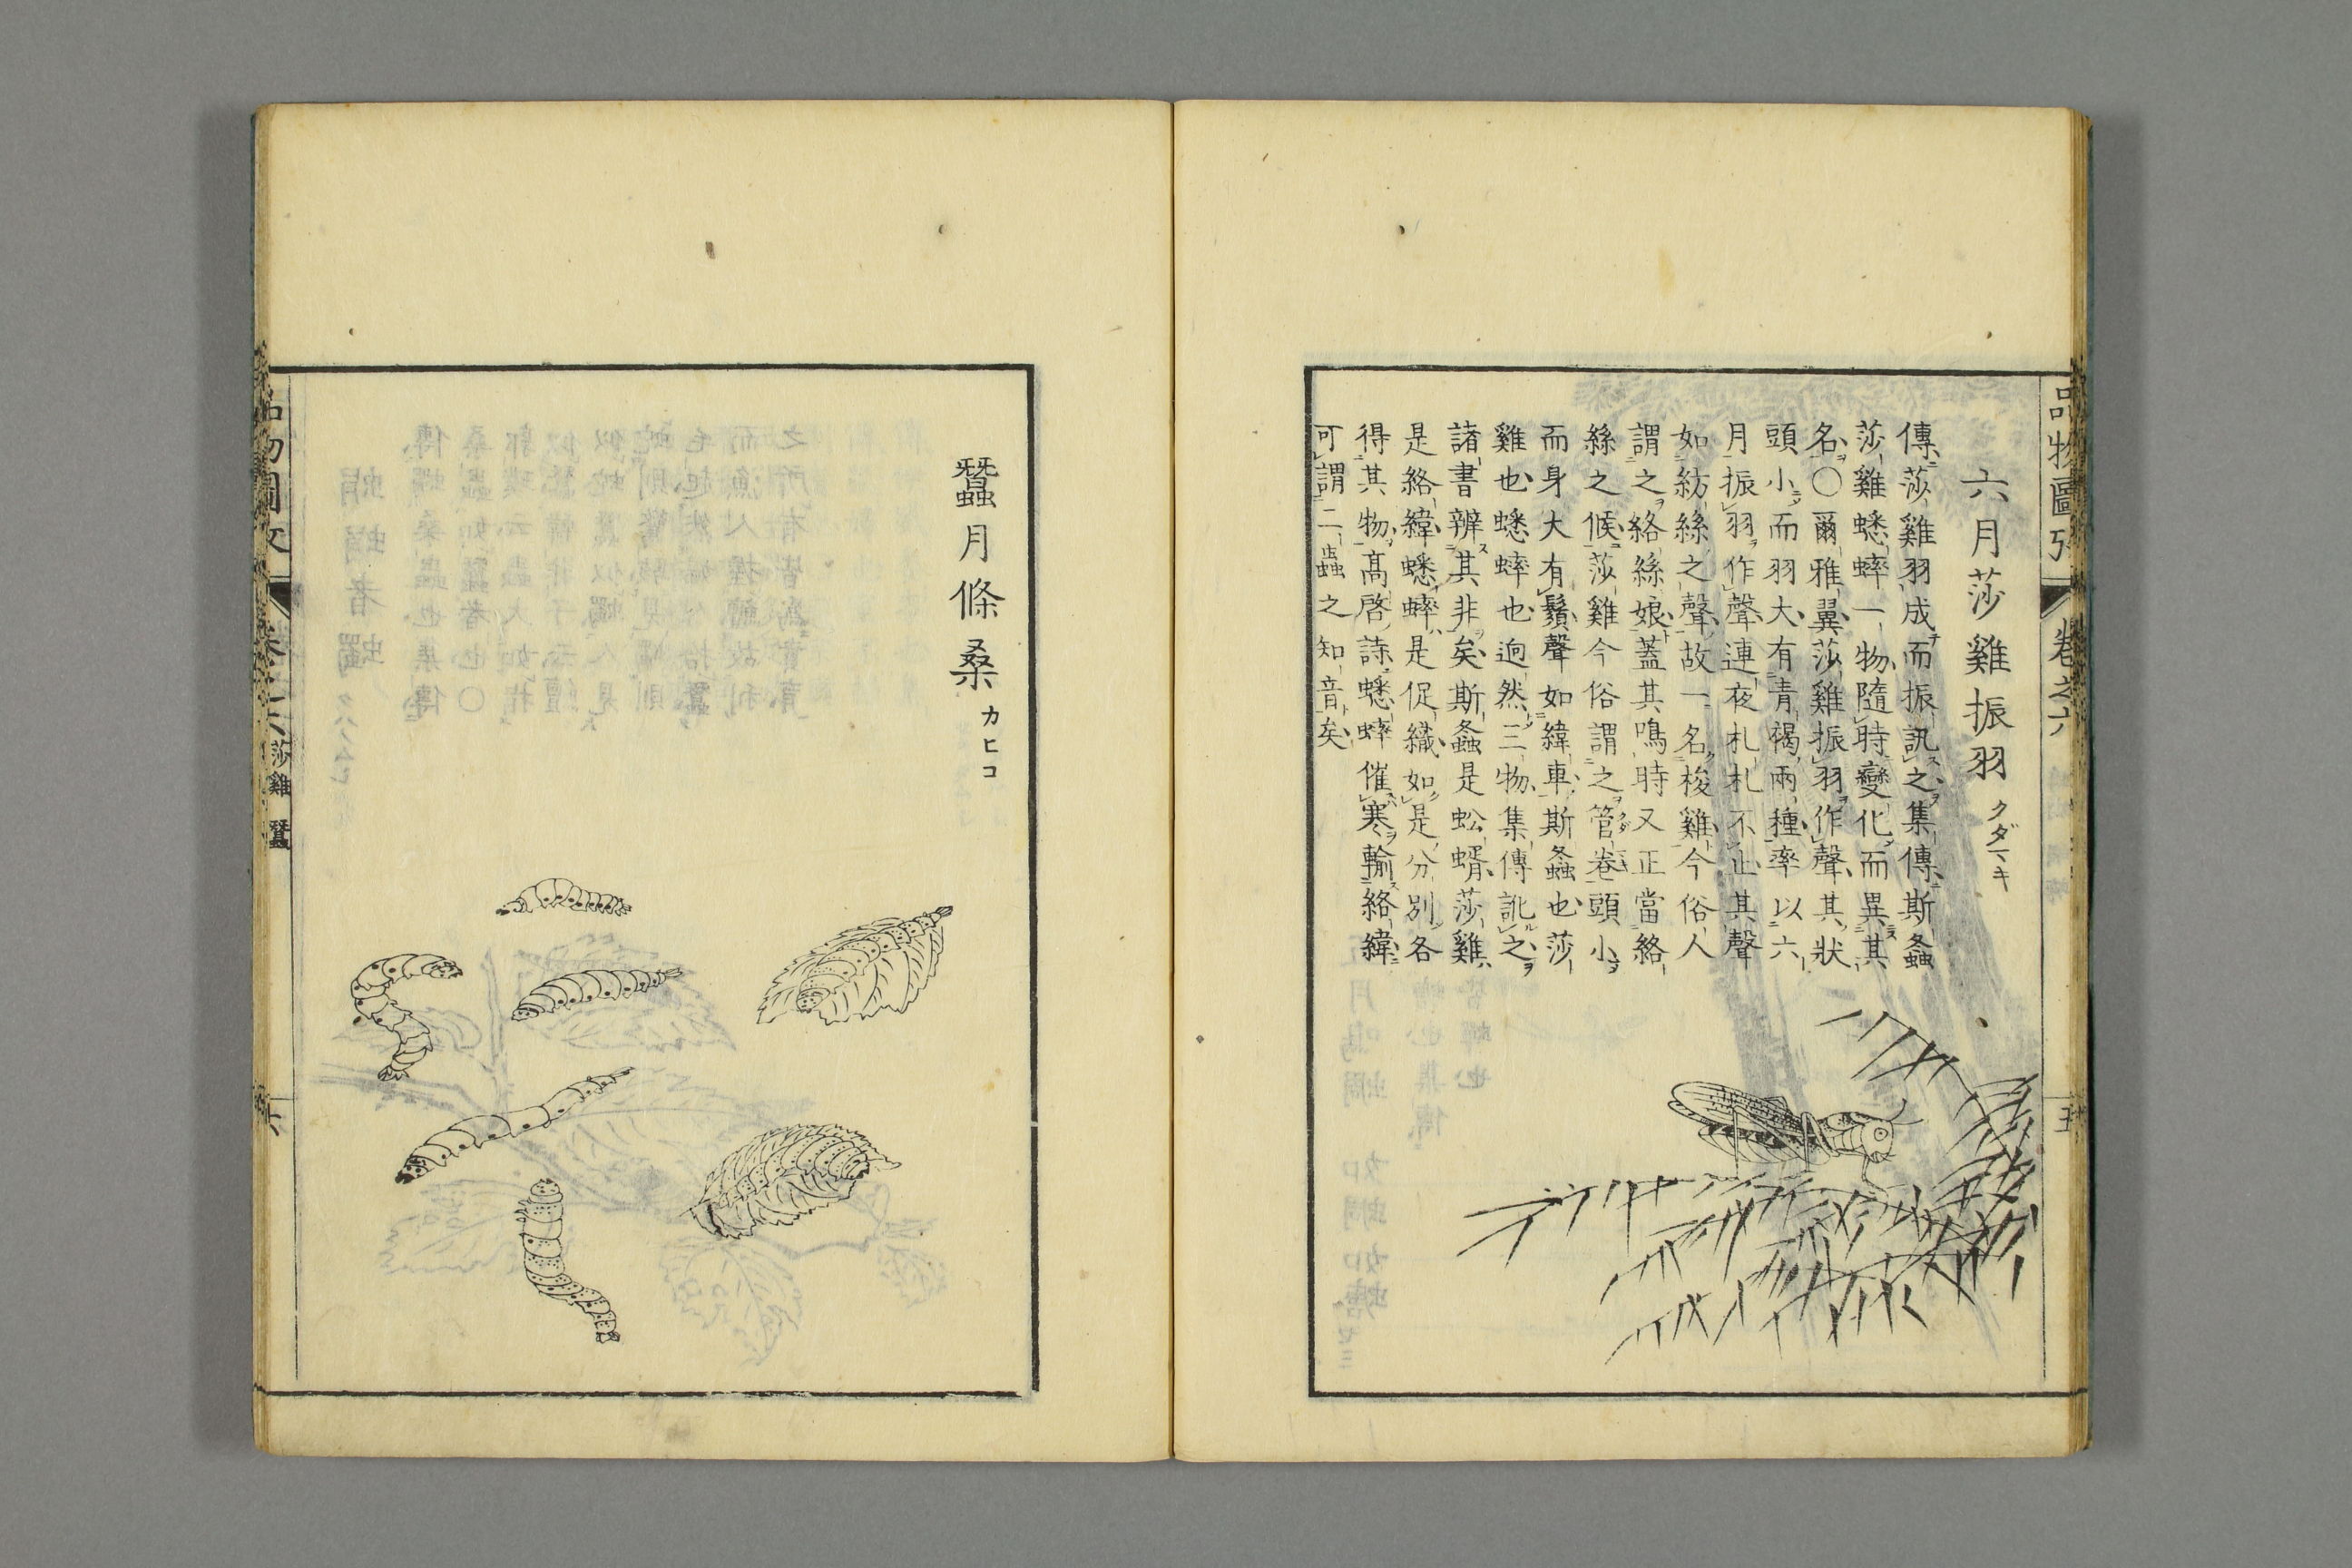 六月莎雞振羽 クダマキ
傳莎雞羽成而振訊之集傳斯螽
莎雞蟋蟀一物隨時變化而異其
名〇爾雅翼莎雞振羽作聲其狀
頭小而羽大有青褐兩種率以六
月振羽作聲連夜札札不止其聲
如紡絲之聲故一名梭雞今俗人
謂之絡絲娘蓋其鳴時又正當絡
絲之候莎雞今俗謂之管卷頭小
而身大有鬚聲如緯車斯螽也莎
雞也蟋蟀也迥然三物集傳訛之
諸書辨其非矣斯螽是蚣蝑莎雞
是絡緯蟋蟀是促織如是分別各
得其物高啓詩蟋蟀催寒輸絡緯
可謂二蟲之知音矣
品物圖攷 卷之六 五
蠶月條桑 カヒコ
品物圖攷 卷之六 莎雞 蠶 六